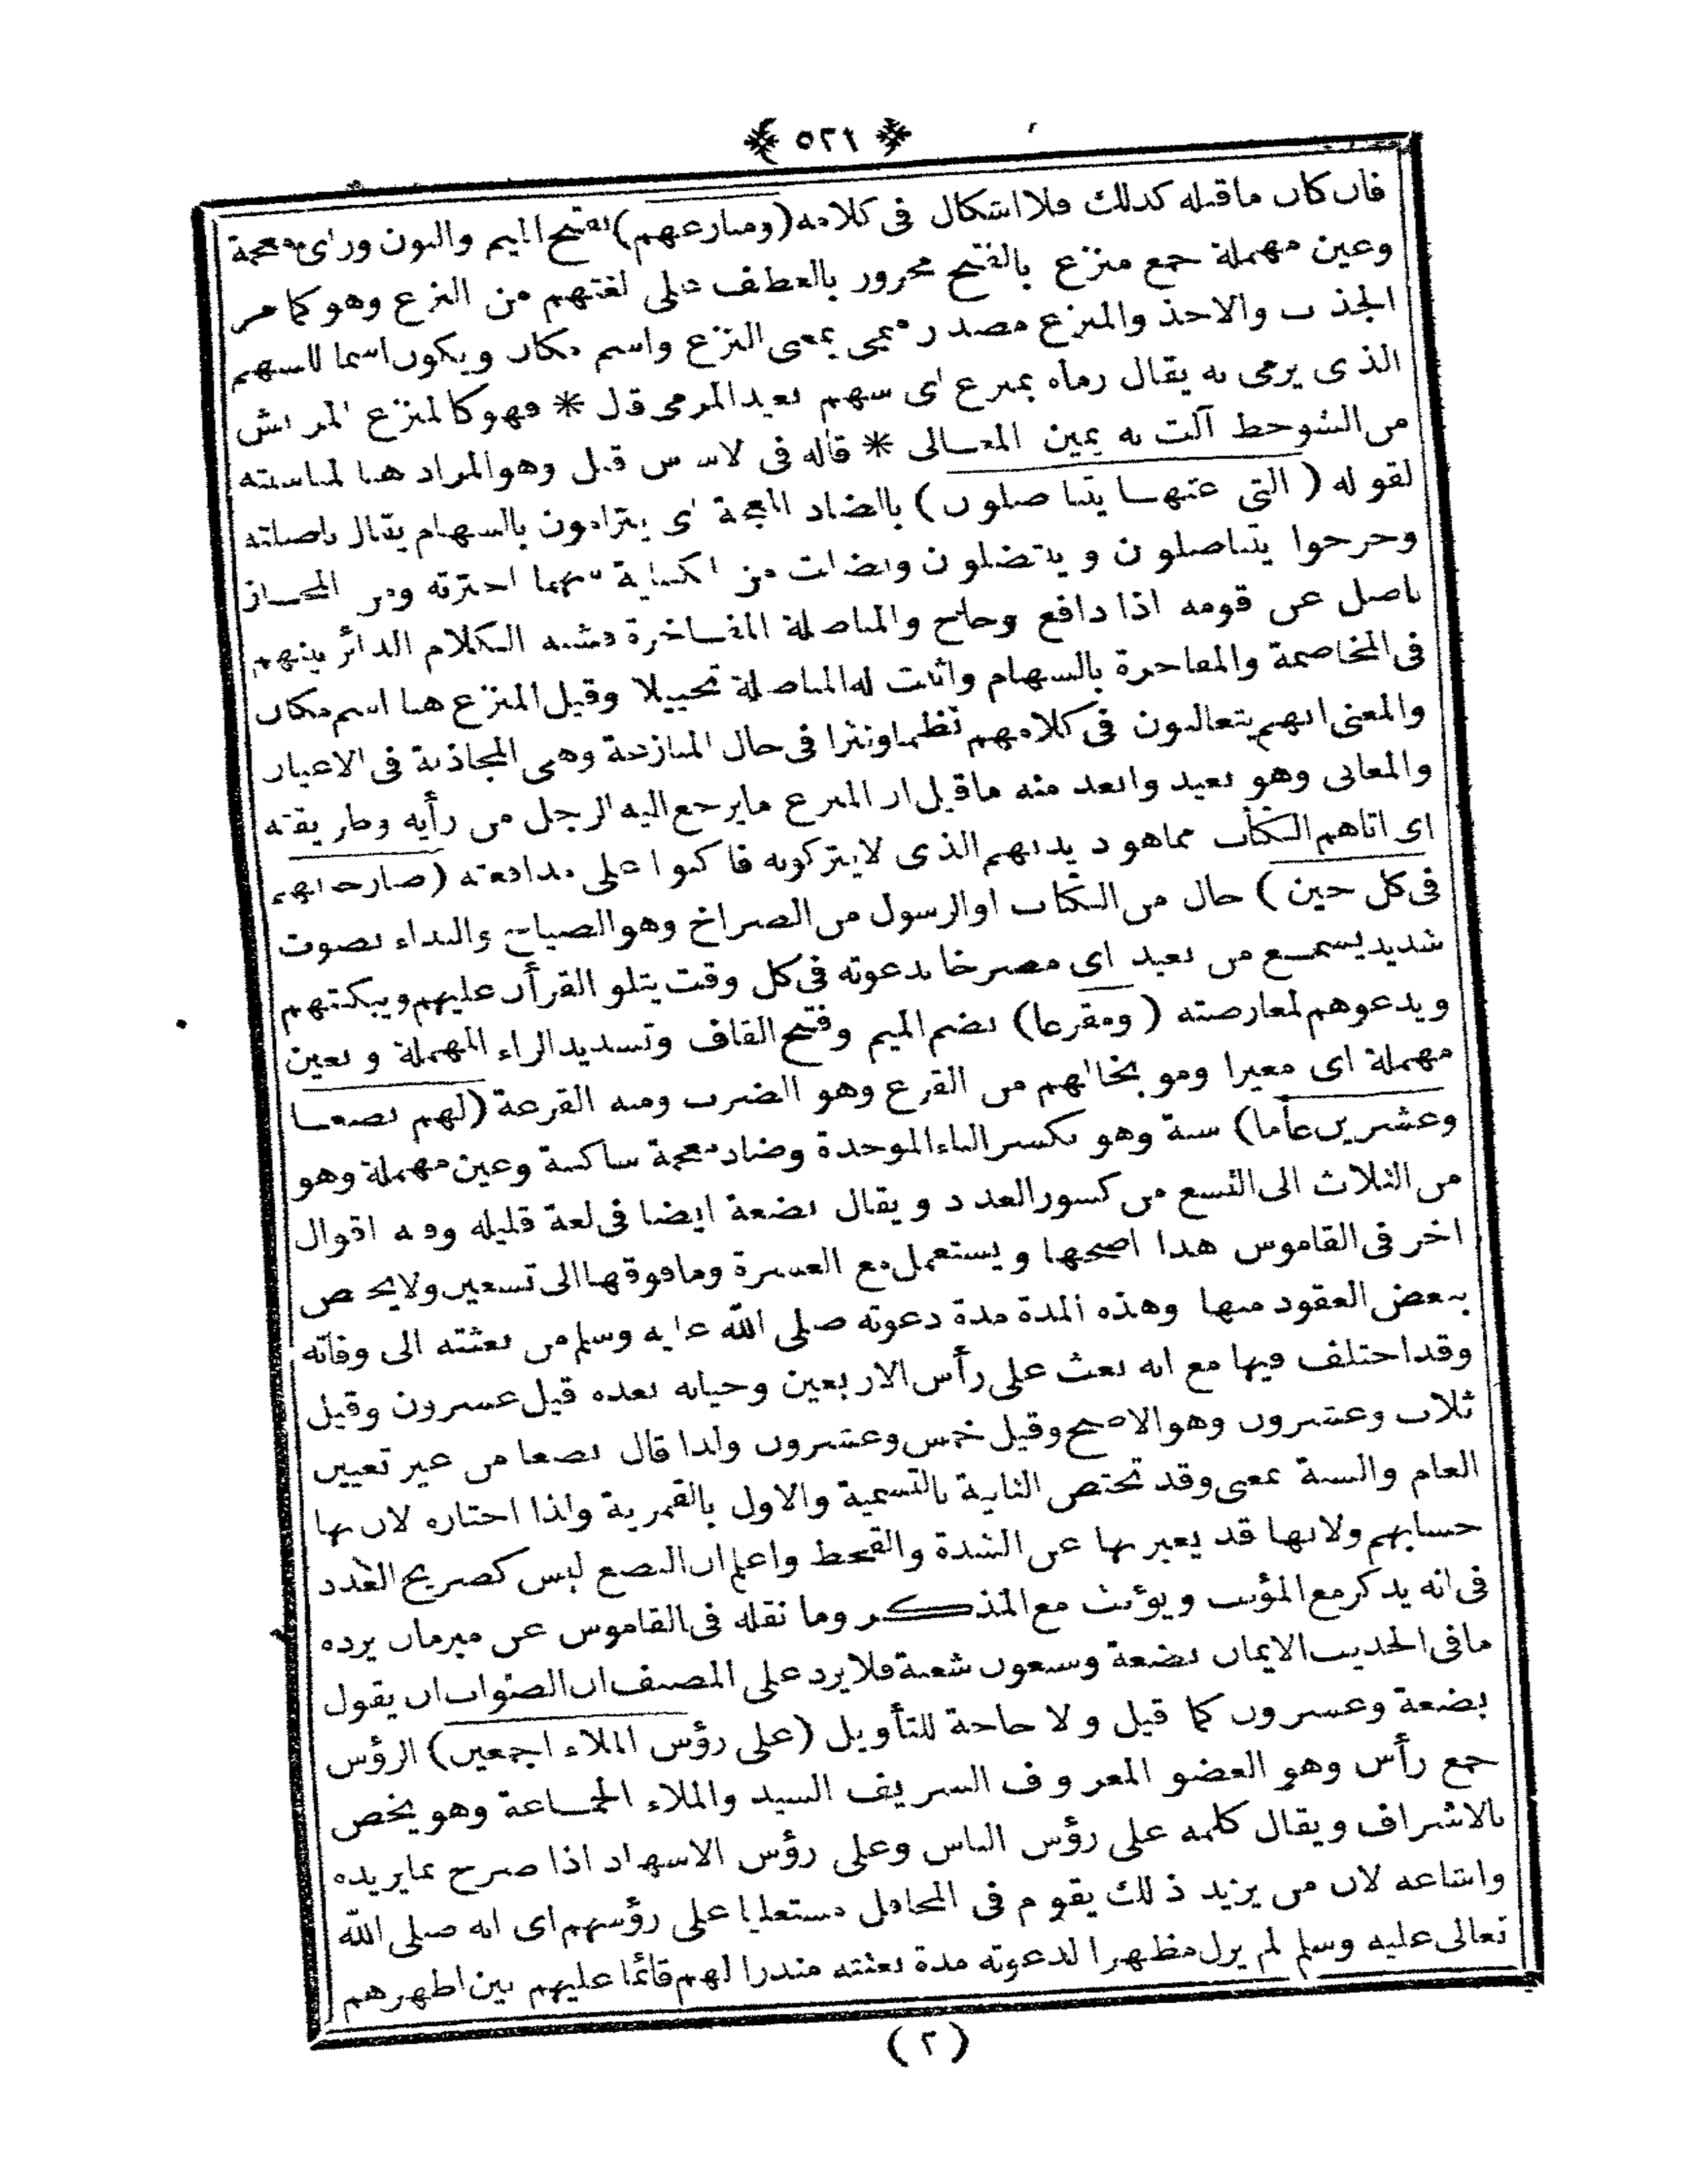 ﴿ ٥٢١ ﴾
فان كان ماقبله كذلك فلا اشكال فى كلامه (ومنازعهم) بفتح الميم والنون وزاى معجمة
وعين مهملة جمع منزع بالفتح مجرور بالعطف على لغتهم من النزع وهو كما مر
الجذب والاخذ والمنزع مصدر ميمى بمعنى النزع واسم مكان ويكون اسما للسهم
الذى يرمى به يقال رماه بمنزع اى سهم بعيد المرمى قال * فهو كالمنزع المريش
من الشوحط آلت به يمين المغالى * قاله فى الاساس قيل وهو المراد هنا لمناسبته
لقوله (التى عنها يتناضلون) بالضاد المعجمة اى يترامون بالسهام يقال ناضلته
وخرجوا يتناضلون وينتضلون ونضلت من الكنانة سهما اخترته ومن المجاز
ناضل عن قومه اذا دافع وحاج والمناضلة المفاخرة فشبه الكلام الدائر بينهم
فى المخاصمة والمفاخرة بالسهام واثبت له المناضلة تخييلا وقيل المنزع هنا اسم مكان
والمعنى انهم يتغالبون فى كلامهم نظما ونثرا فى حال المنازعة وهى المجاذبة فى الاعيان
والمعانى وهو بعيد وابعد منه ماقيل ان المنزع مايرجع اليه الرجل من رأيه وطريقته
اى اتاهم الكتاب مماهو ديدنهم الذى لايتركونه فاكبوا على مدافعته (صارخا بهم
فى كل حين) حال من الكتاب او الرسول من الصراخ وهو الصياح والنداء بصوت
شديد يسمع من بعيد اى مصرخا بدعوته فى كل وقت يتلو القرأن عليهم ويبكتهم
ويدعوهم لمعارضته (ومقرعا) بضم الميم وفتح القاف وتشديد الراء المهملة وبعين
مهملة اى معيرا وموبخا لهم من القرع وهو الضرب ومنه القرعة (لهم بضعا
وعشرين عاما) سنة وهو بكسر الباء الموحدة وضاد معجمة ساكنة وعين مهملة وهو
من الثلاث الى التسع من كسور العدد ويقال بضعة ايضا فى لغة قليله وفيه اقوال
اخر فى القاموس هذا اصحها ويستعمل مع العشرة ومافوقها الى تسعين ولايختص
ببعض العقود منها وهذه المدة مدة دعوته صلى الله عليه وسلم من بعثته الى وفاته
وقد اختلف فيها مع انه بعث على رأس الاربعين وحياته بعده قيل عشرون وقيل
ثلاث وعشرون وهو الاصح وقيل خمس وعشرون ولذا قال بضعا من غير تعيين
العام والسنة بمعنى وقد تختص الثانية بالشمسية والاول بالقمرية ولذا اختاره لان بها
حسابهم ولانها قد يعبر بها عن الشدة والقحط واعلم ان البضع ليس كصريح العدد
فى انه يذكر مع المؤنث ويؤنث مع المذكر وما نقله فى القاموس عن مبرمان يرده
مافى الحديث الايمان بضعة وسبعون شعبة فلا يرد على المصنف ان الصواب ان يقول
بضعة وعشرون كما قيل ولا حاجة للتأويل (على رؤس الملاء اجمعين) الرؤس
جمع رأس وهو العضو المعروف الشريف السيد والملاء الجماعة وهو يخص
بالاشراف ويقال كلمه على رؤس الناس وعلى رؤس الاشهاد اذا صرح بمايريده
واشاعه لان من يريد ذلك يقوم فى المحافل مستعليا على رؤسهم اى انه صلى الله
تعالى عليه وسلم لم يزل مظهرا لدعوته مدة بعثته منذرا لهم قائما عليهم بين اظهرهم
(٢)